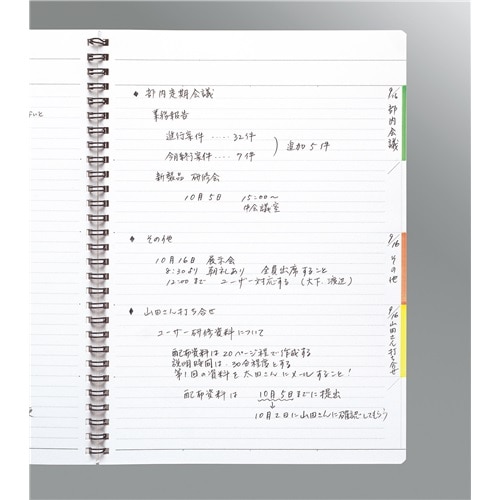 ◆ 部内定期会議
業務報告
進行案件 ‥‥ 32件
今月終了案件 ‥‥ 7件
追加5件
新製品 研修会
10月5日 15:00〜
会議室
◆ その他
10月16日 展示会
8:30より 朝礼あり 全員出席すること
12:00まで ユーザー対応する (大下、渡辺)
◆ 山田さん打ち合せ
ユーザー研修資料について
配布資料は20ページ程で作成する
説明時間は 30分程度とする
第1回の資料を太田さんにメールすること!
配布資料は 10月5日までに提出
↓
10月2日に山田さんに確認してもらう
9/16 部内会議
9/16 その他
9/16 山田さん打ち合せ